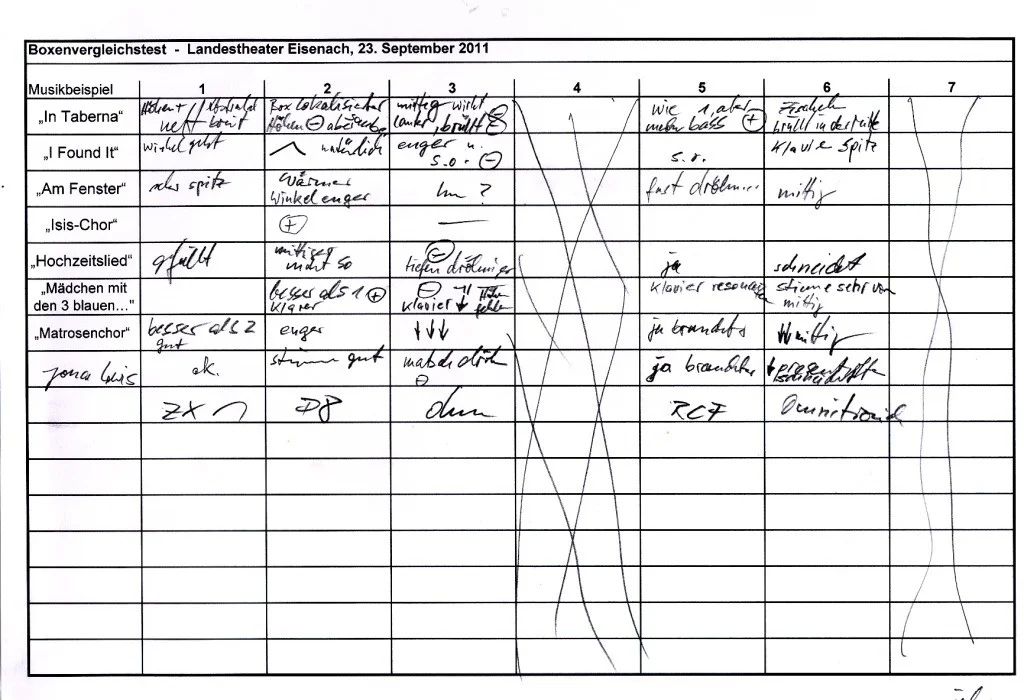 Boxenvergleichstest - Landestheater Eisenach, 23. September 2011
Musikbeispiel 1 2 3 4 5 6 7
„In Taberna“ Höhen + nett breit Box lokalisierbar Höhen ⊖ mittig wirkt brüllt wie 1, aber mehr bass ⊕ brüllt in der
„I Found It“ winkel gut natürlich enger u. s.o. ⊖ s.o. Klavier spitz
„Am Fenster“ sehr spitz wärmer winkel enger hm ? fast mittig
„Isis-Chor“ ⊕ —
„Hochzeitslied“ gefällt mittiger nicht so ⊖ tiefen dröhniger ja schneidet
„Mädchen mit den 3 blauen...“ besser als 1 ⊕ klarer ⊖ Klavier ↓ Höhen fehlen Klavier stimme sehr mittig
„Matrosenchor“ besser als 2 gut enger ↓↓↓ ja brauchbar mittig
Jona Lewis ok. stimme gut ⊖ ja brauchbar
ZX D8 RCF Omnitronic